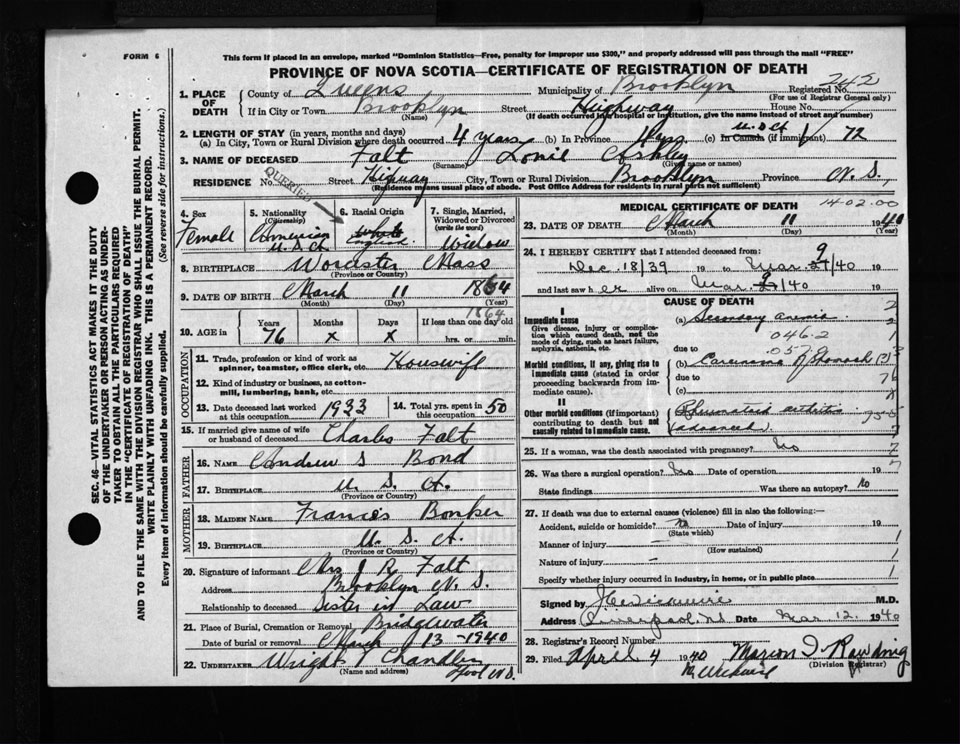 FORM 6
This form if placed in an envelope, marked "Dominion Statistics—Free, penalty for improper use $300," and properly addressed will pass through the mail "FREE"
PROVINCE OF NOVA SCOTIA—CERTIFICATE OF REGISTRATION OF DEATH
SEC. 46—VITAL STATISTICS ACT MAKES IT THE DUTY
OF THE UNDERTAKER OR PERSON ACTING AS UNDER-
TAKER TO OBTAIN ALL THE PARTICULARS REQUIRED
IN THE "CERTIFICATE OF REGISTRATION OF DEATH"
AND TO FILE THE SAME WITH THE DIVISION REGISTRAR WHO SHALL ISSUE THE BURIAL PERMIT.
WRITE PLAINLY WITH UNFADING INK. THIS IS A PERMANENT RECORD.
Every item of information should be carefully supplied. (See reverse side for instructions.)
1. PLACE OF DEATH
County of Queens Municipality of Brooklyn Registered No. 242
(For use of Registrar General only)
If in City or Town Brooklyn Street Highway House No.
(Name) (If death occurred in a hospital or institution, give the name instead of street and number)
2. LENGTH OF STAY (in years, months and days)
(a) In City, Town or Rural Division where death occurred 4 years (b) In Province 4 yrs (c) in Canada (if immigrant) 72
3. NAME OF DECEASED Falt
(Surname) (Given name or names)
RESIDENCE No. Street Higway City, Town or Rural Division Brooklyn Province N. S.
(Residence means usual place of abode. Post Office Address for residents in rural parts not sufficient)
QUERIED
4. Sex
Female
5. Nationality
(Citizenship)
American
U.S.A.
6. Racial Origin
White
English
7. Single, Married, Widowed or Divorced
(write the word)
Widow
8. BIRTHPLACE Worcister Mass
(Province or Country)
9. DATE OF BIRTH March 11 1864
(Month) (Day) (Year)
1864
10. AGE in Years Months Days If less than one day old
76 x x hrs. or min.
OCCUPATION
11. Trade, profession or kind of work as spinner, teamster, office clerk, etc. Housewife
12. Kind of industry or business, as cotton-mill, lumbering, bank, etc.
13. Date deceased last worked at this occupation 1933 14. Total yrs. spent in this occupation 50
15. If married give name of wife or husband of deceased Charles Falt
FATHER
16. NAME Andrew S Bond
17. BIRTHPLACE U. S. A.
(Province or Country)
MOTHER
18. MAIDEN NAME Frances Bonker
19. BIRTHPLACE U. S. A.
(Province or Country)
20. Signature of informant Mrs J R Falt
Address Brooklyn N. S.
Relationship to deceased Sister in Law
21. Place of Burial, Cremation or Removal Bridgewater
Date of burial or removal March 13-1940
22. UNDERTAKER Wright Chandler
(Name and address)
MEDICAL CERTIFICATE OF DEATH
14-02.00
23. DATE OF DEATH March 11 1940
(Month) (Day)
24. I HEREBY CERTIFY that I attended deceased from:
Dec. 18/39 19 to Mar. 9/40 19
and last saw her alive on Mar. 9/40 19
CAUSE OF DEATH
I
Immediate cause
Give disease, injury or complication which caused death, not the mode of dying, such as heart failure, asphyxia, asthenia, etc.
(a) Secondary anemia
046-2
due to
Morbid conditions, if any, giving rise to immediate cause (stated in order proceeding backwards from immediate cause.
(b) Carcinoma of Stomach (?)
due to
(c)
II
Other morbid conditions (if important) contributing to death but not causally related to immediate cause.
Rheumatoid arthritis
advanced
25. If a woman, was the death associated with pregnancy? No
26. Was there a surgical operation? No Date of operation 19
State findings Was there an autopsy? No
27. If death was due to external causes (violence) fill in also the following:—
Accident, suicide or homicide? No Date of injury 19
(State which)
Manner of injury —
(How sustained)
Nature of injury —
Specify whether injury occurred in industry, in home, or in public place
Signed by M.D.
Address Liverpool N.S. Date Mar 12, 1940
28. Registrar's Record Number
29. Filed April 4 1940 Marion I. Rawding
(Division Registrar)